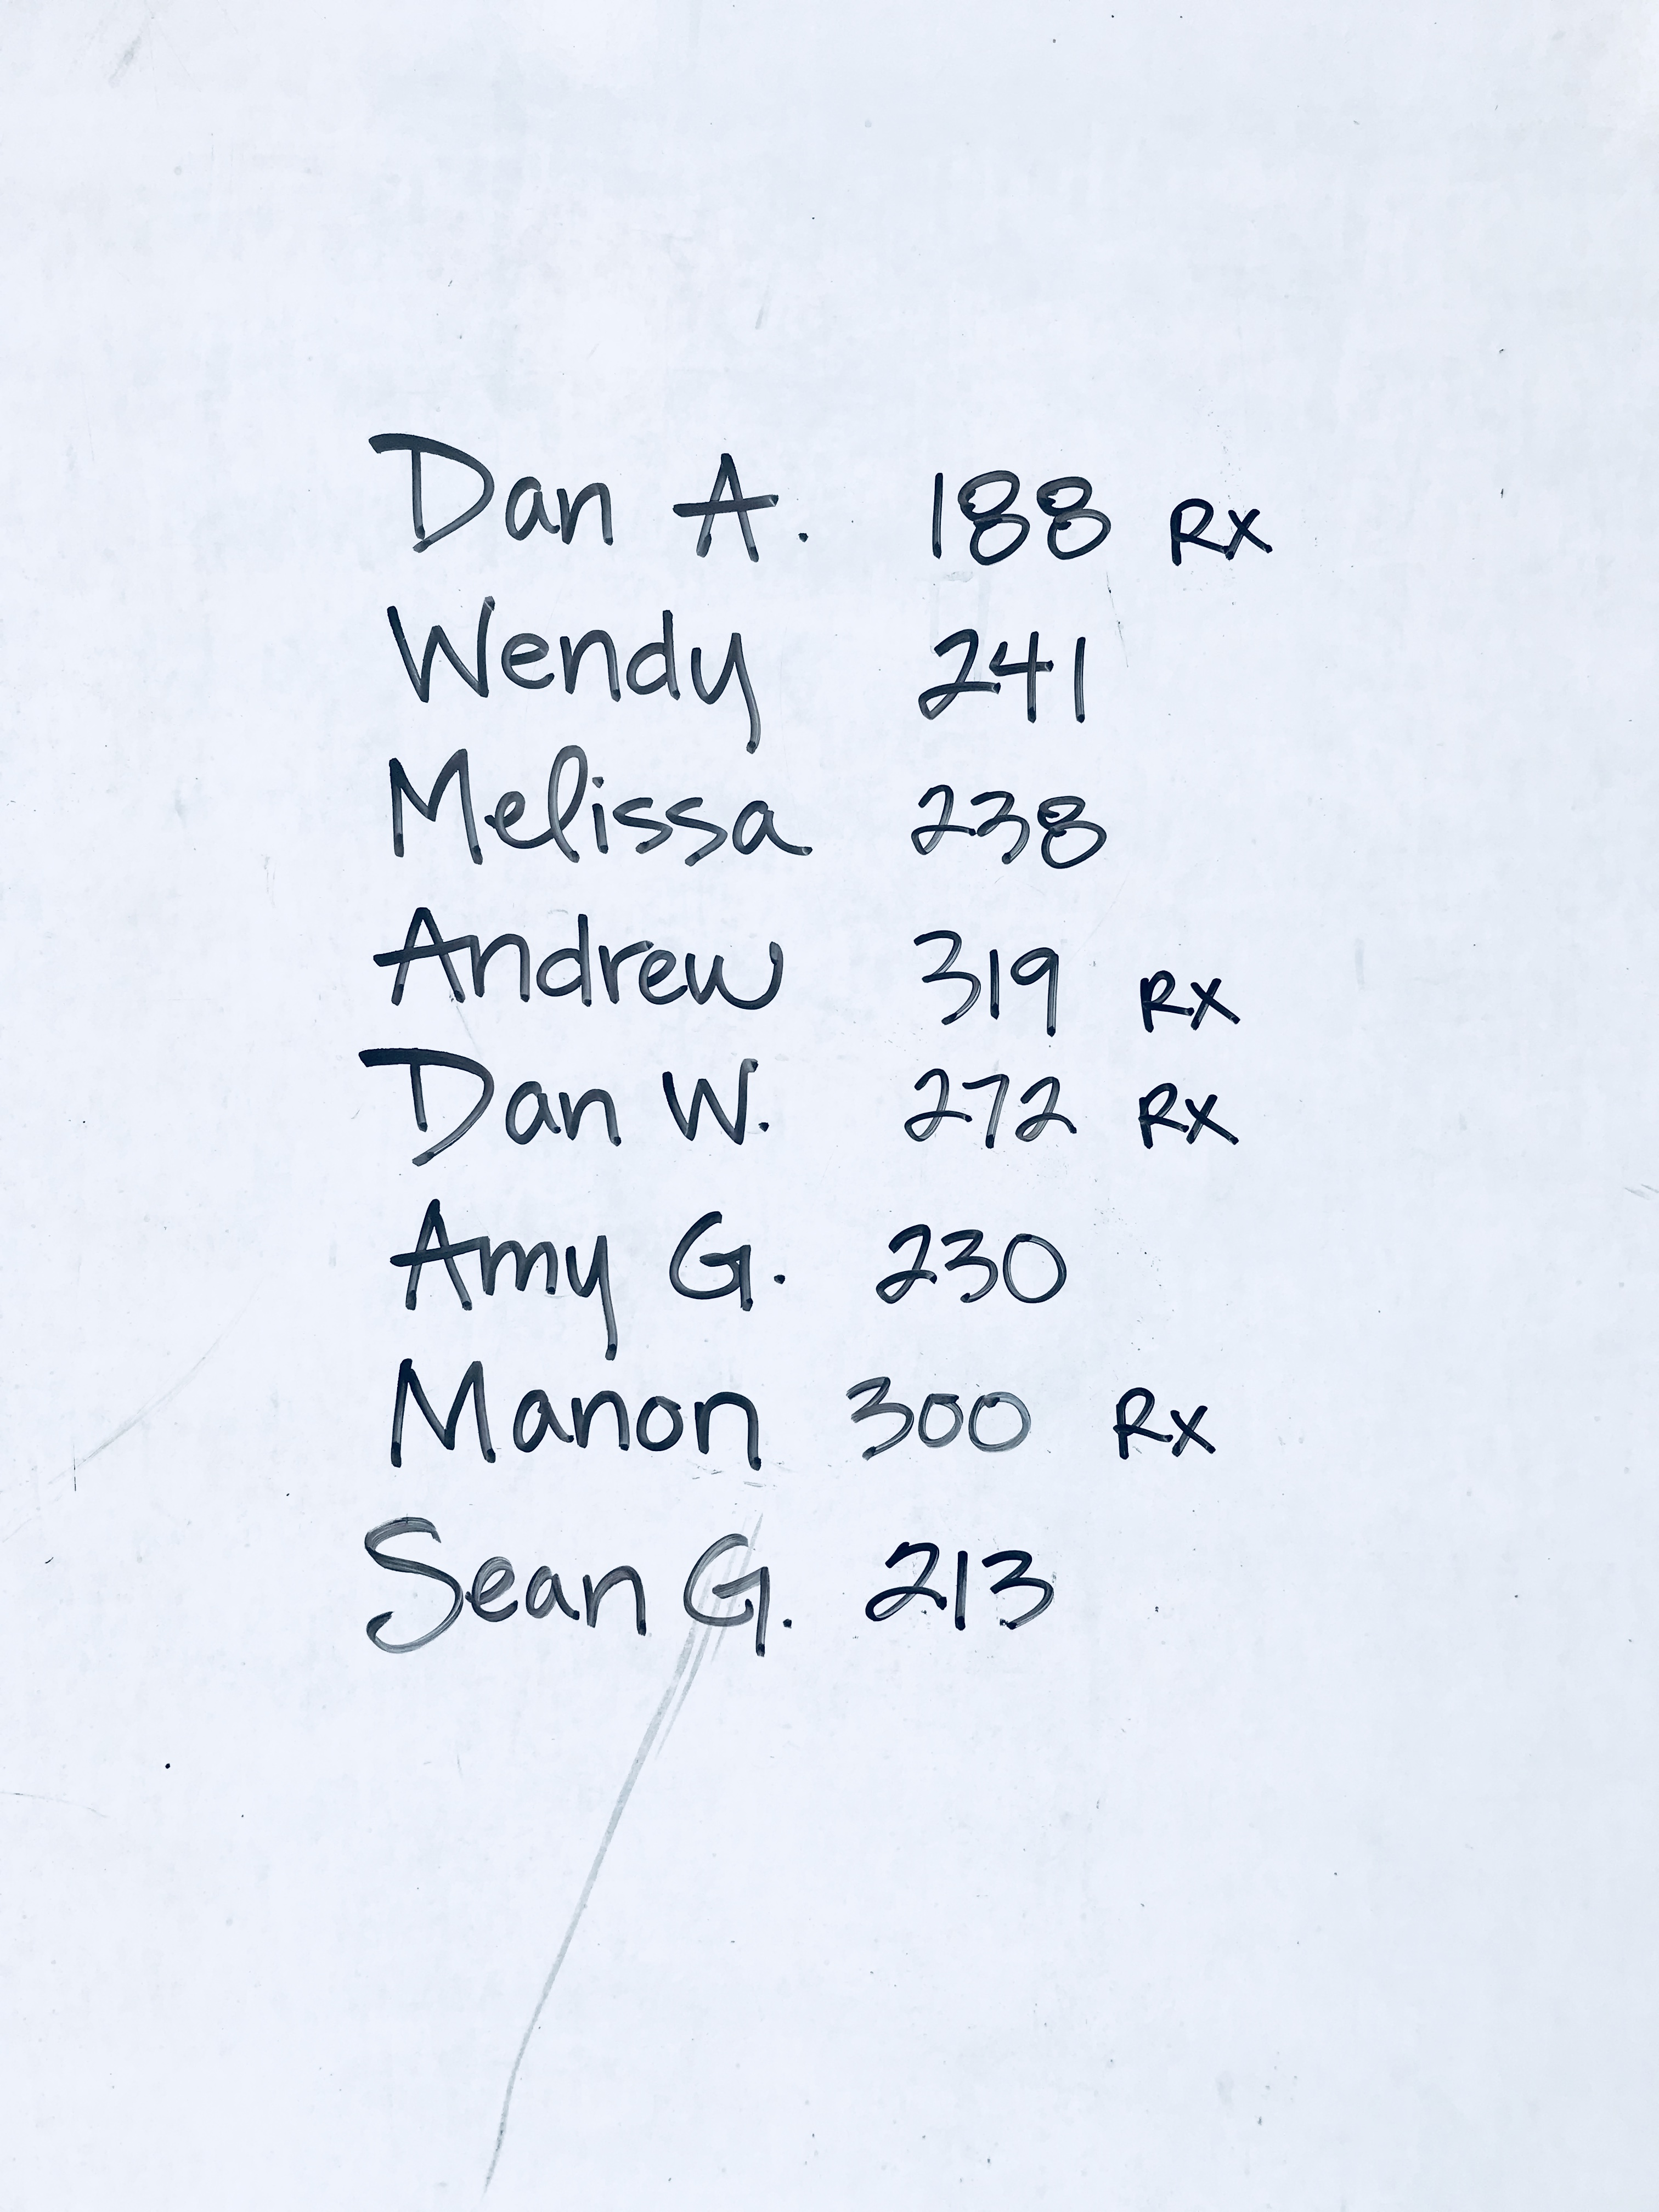 Dan A. 188 Rx
Wendy 241
Melissa 238
Andrew 319 Rx
Dan W. 272 Rx
Amy G. 230
Manon 300 Rx
Sean G. 213